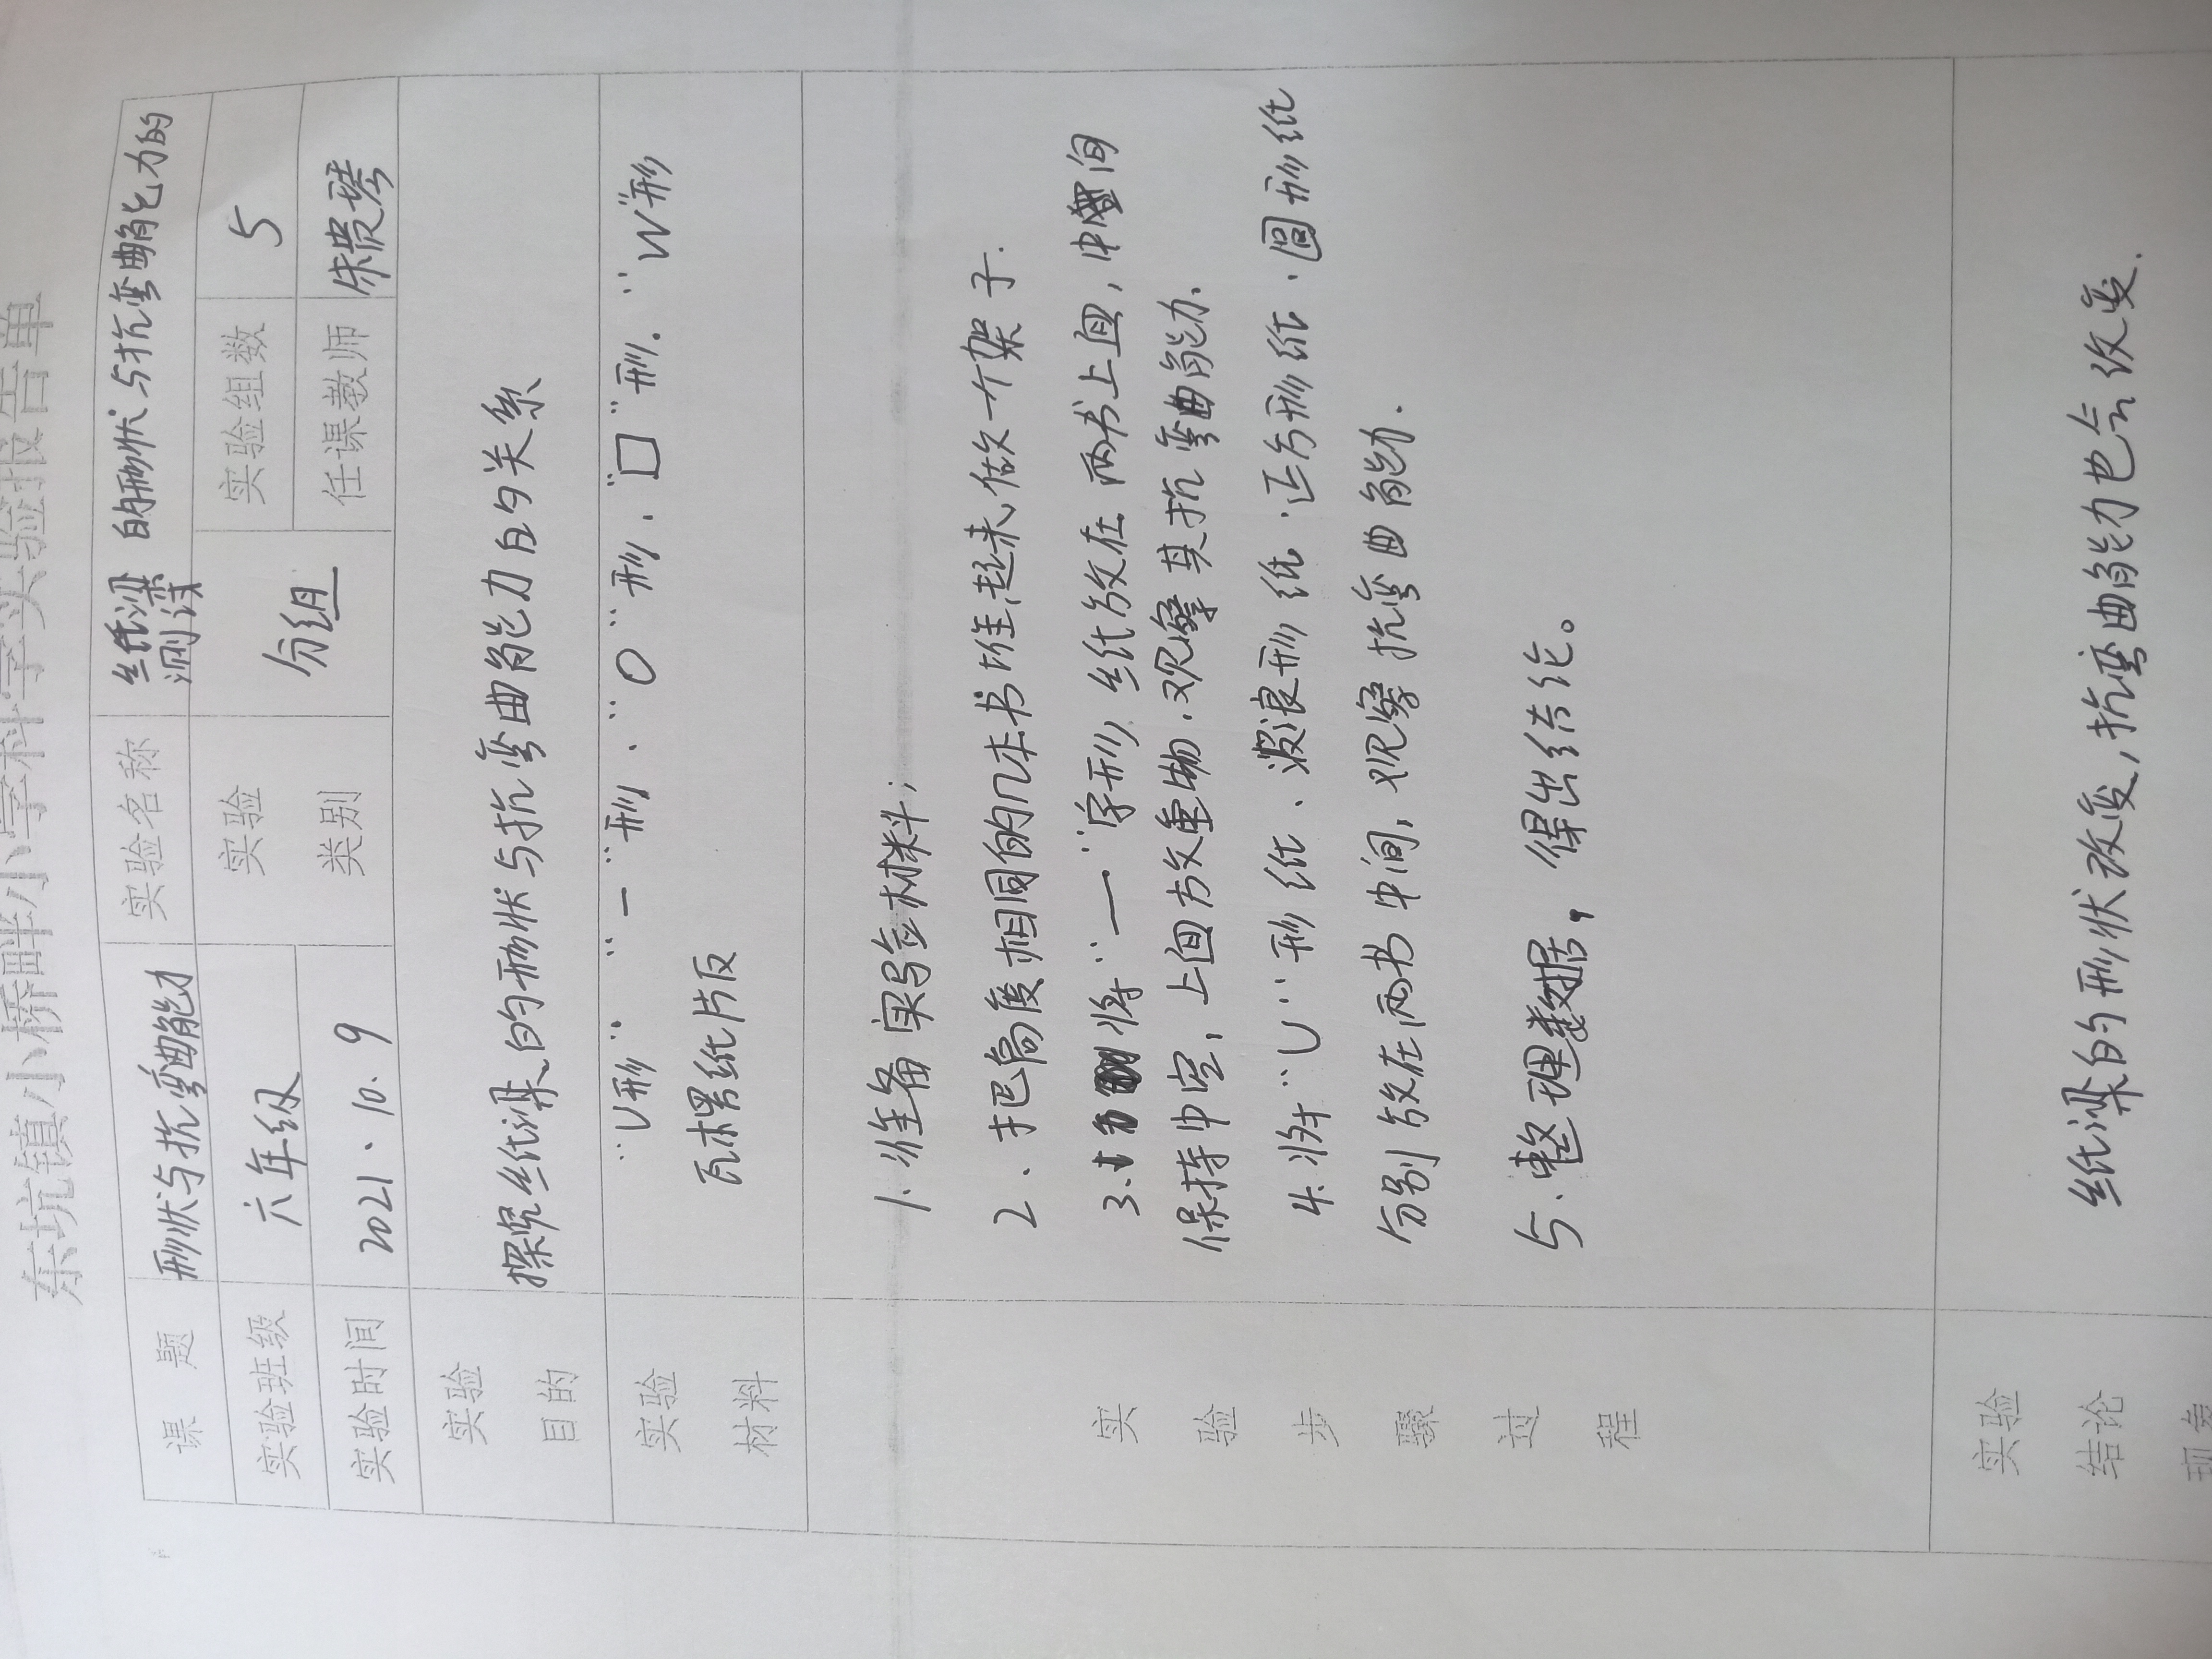 东坑镇小桥畔小学科学实验报告单
课 题 形状与抗弯曲能力 实验名称 纸梁的形状与抗弯曲能力的
测试
实验班级 六年级 实验 类别 分组 实验组数 5
实验时间 2021、10.9 任课教师 朱贵琴
实验
目的
探究纸梁的形状与抗弯曲能力的关系
实验
材料
"U形" "一"形、"O"形、"口"形."W"形
瓦楞纸片板
实
验
步
骤
过
程
1.准备实验材料;
2、把高度相同的几本书堆起来,做一个架子.
3.将"一"字形纸放在两书上面,中间
保持中空,上面放重物.观察其抗弯曲能力.
4.将"U"形纸、波浪形纸.正方形纸.圆形纸
分别放在两书中间,观察抗弯曲能力.
5.整理数据,得出结论。
实验
结论
现象
纸梁的形状改变,抗弯曲能力也会改变.